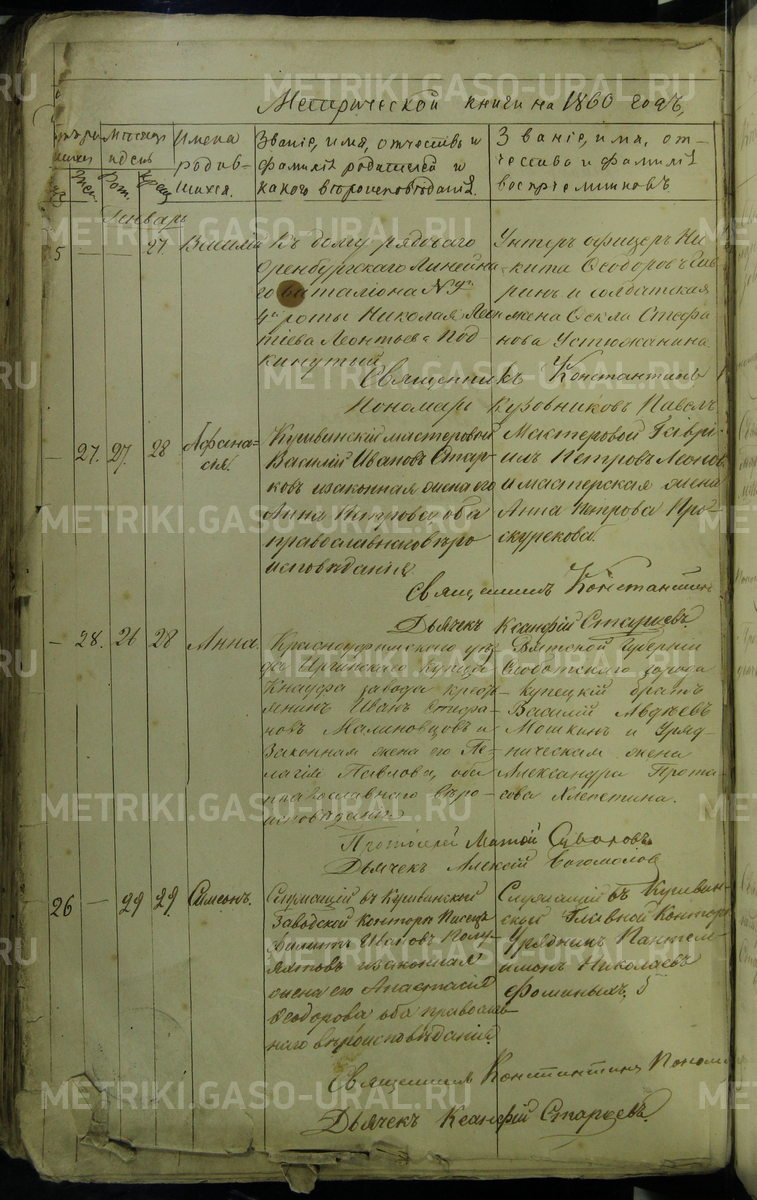 Метрической книги на 1860 годъ,
Мѣсяцъ
и день
Имена
родив-
шихся.
Званіе, имя, отчество и
фамилія родителей и
какого вѣроисповѣданія.
Званіе, имя, от-
чество и фамилія
воспріемниковъ
Жен.
Рож.
Крещ.
Январь
27
Василій
Къ дому рядоваго
Оренбургскаго Линейна-
го баталіона №
4й роты Николая Леон
тіева Леонтьева под
кинутый
Унтеръ офицеръ Ни-
кита Ѳеодоровъ
и солдатская
жена Ѳекла Стефа
нова Устюжанина
Священникъ Константинъ
Пономарь Кузовниковъ Павелъ
27. 27 28
Афана-
сія.
Кушвинскій мастеровой
Василій Ивановъ Стар-
ковъ и законная жена его
Анна Петрова оба
православнаго вѣро
исповѣданія
Мастеровой Гаврі-
илъ Петровъ Леонов
и мастерская жена
Анна Петрова Про-
скурекова.
Священникъ Константинъ
Дьячекъ Ксанфій Старцевъ
28. 26 28
Анна.
Красноуфимскаго уѣз
да Иргинскаго купца
Кнауфа завода кресть
янинъ Иванъ Стефа-
новъ Малиновцовъ и
законная жена его Пе-
лагія Павлова, оба
православнаго вѣро-
исповѣданія
Вятской Губерніи
Слободскаго города
купецкій братъ
Василій Авдѣевъ
Мошкинъ и Уряд-
ническая жена
Александра Прота-
сова Хлепетина.
Протоіерей Матѳей Суворовъ
Дьячекъ Алексій Богомоловъ
26 29 29.
Симеонъ.
Служащій въ Кушвинской
Заводской Конторѣ Писецъ
Филиппъ Ивановъ Полу-
яхтовъ и законная
жена его Анастасія
Ѳеодорова оба православ-
наго вѣроисповѣданія
Служащій въ Кушвин-
ской Главной Конторѣ
Урядникъ Пантелей-
имонъ Николаевъ
Фоминыхъ.
Священникъ Константинъ Поном
Дьячекъ Ксанфій Старцевъ.
METRIKI.GASO-URAL.RU